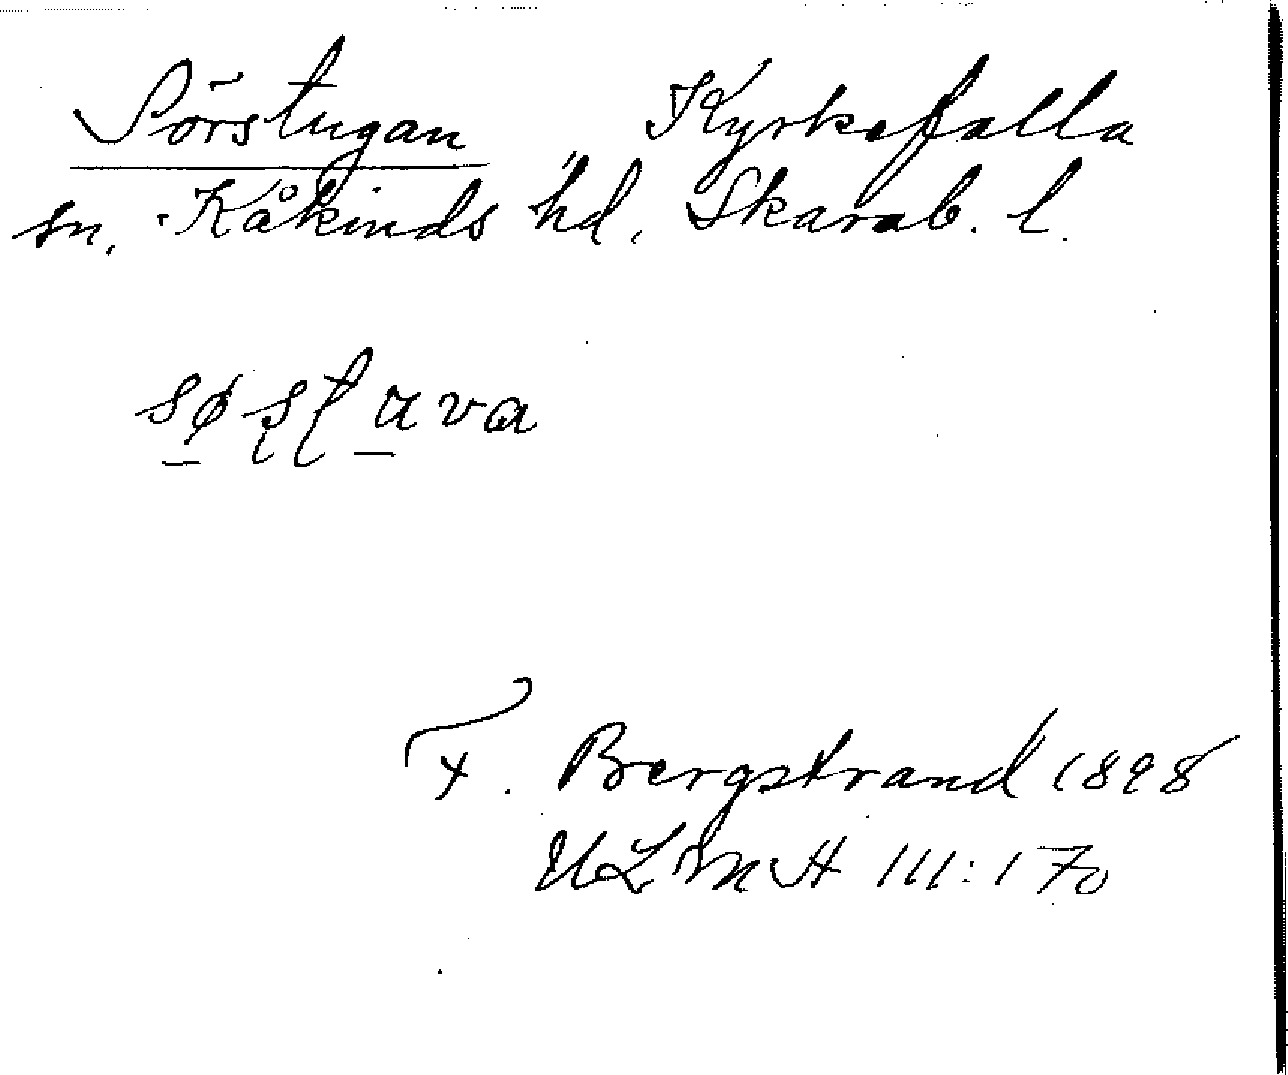 Sörstugan Kyrkefalla
sn. Kåkinds hd, Skarab. l.
søʂʈava
F. Bergstrand 1898
ULMA 111:170